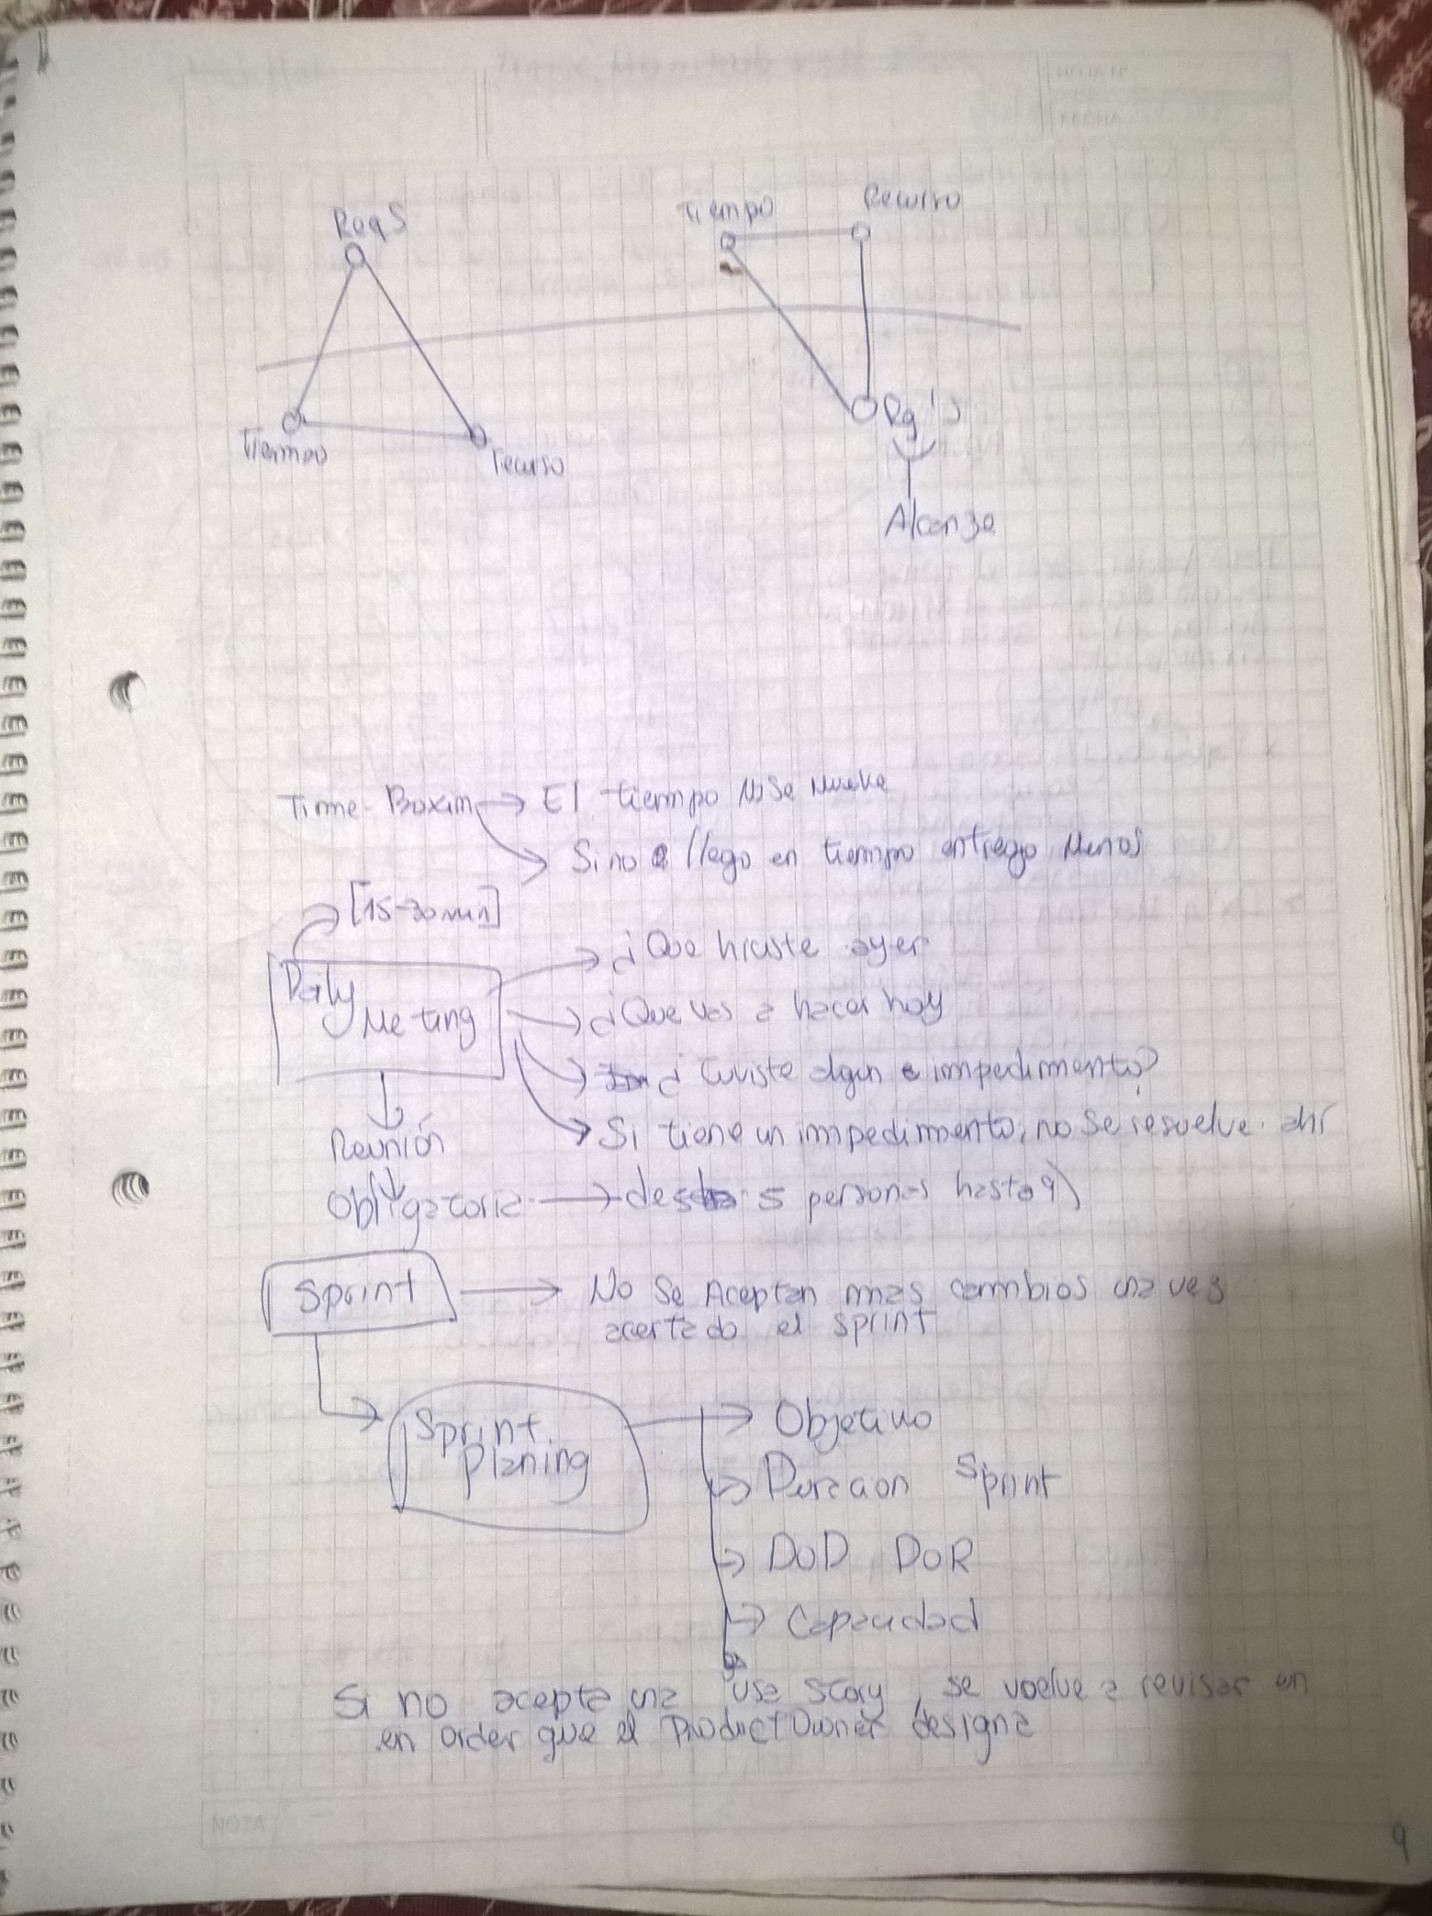 ReqS
Tiempo
recurso
Tiempo
Recurso
Rq's
Alcanze
Time-Boxin → El tiempo No Se Mueve
Si no llego en tiempo entrego Menos
[15-30 min]
Daily Meting
¿Que hiciste ayer
¿Que vas a hacer hoy
¿Tuviste algun impedimento?
Si tiene un impedimento, no se resuelve ahí
Reunión
Obligatoria → desde 5 personas hasta 9)
Sprint → No Se Aceptan mas cambios una vez
acertado el sprint
Sprint
Planing
Objetivo
Duracion Sprint
DoD DoR
Capacidad
Si no acepta una Use Story, se vuelve a revisar en
en orden que el ProductOwner designa
NOTA
9